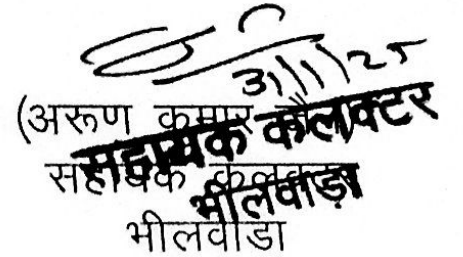 31/1/25
(अरूण कुमार
सहायक कलक्टर
भीलवाडा
सहायक कलेक्टर
भीलवाड़ा